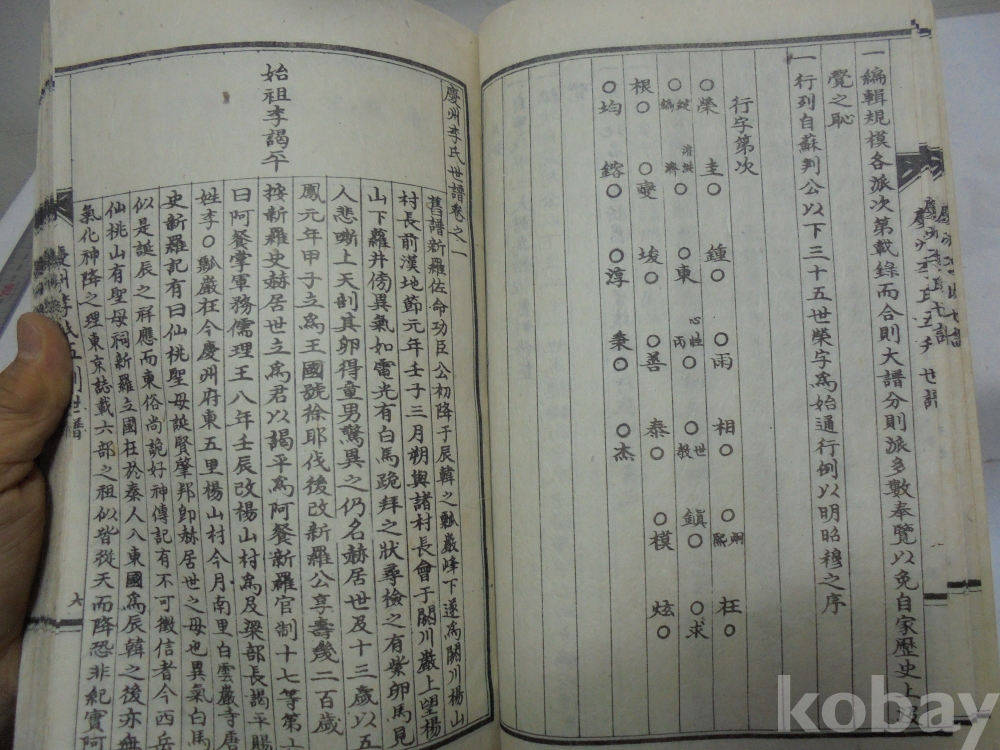 一編輯規模各派次第載錄而合則大譜分則派多數奉覽以免自家歷史上
覺之恥
一行列自蘇判公以下三十五世榮字爲始通行例以明昭穆之序
行字第次
○榮 圭○ ○鍾 ○雨 相○ 熙炯 ○枉
○ 鎬 濟○ ○東 雨心性○ ○敎世 鎭○ ○求
根○ ○燮 埈○ ○善 泰○ ○模 炫○
○均 鎔○ ○淳 秉○ ○杰
慶州李氏世譜卷之一
始祖李謁平
舊譜新羅佐命功臣公初降于辰韓之瓢巖峰下遂爲閼川楊山
村長前漢地節元年壬子三月朔與諸村長會于閼川巖上望楊
山下蘿井傍異氣如電光有白馬跪拜之狀尋檢之有紫卵馬見
人悲嘶上天剖其卵得童男驚異之仍名赫居世及十三歲以五
鳳元年甲子立爲王國號徐耶伐後改新羅公享壽幾二百歲
按新羅史赫居世立爲君以謁平爲阿餐新羅官制十七等第
曰阿餐掌軍務儒理王八年壬辰改楊山村爲及梁部長謁平賜
姓李○瓢巖在今慶州府東五里楊山村今月南里白雲巖寺
史新羅記有曰仙桃聖母誕賢肇邦卽赫居世之母也異氣白馬
似是誕辰之祥應而東俗尚詭好神傳記有不可徵信者今西岳
仙桃山有聖母祠新羅立國在於秦人入東國爲辰韓之後亦
氣化神降之理東京誌載六部之祖似皆從天而降恐非紀實阿
六